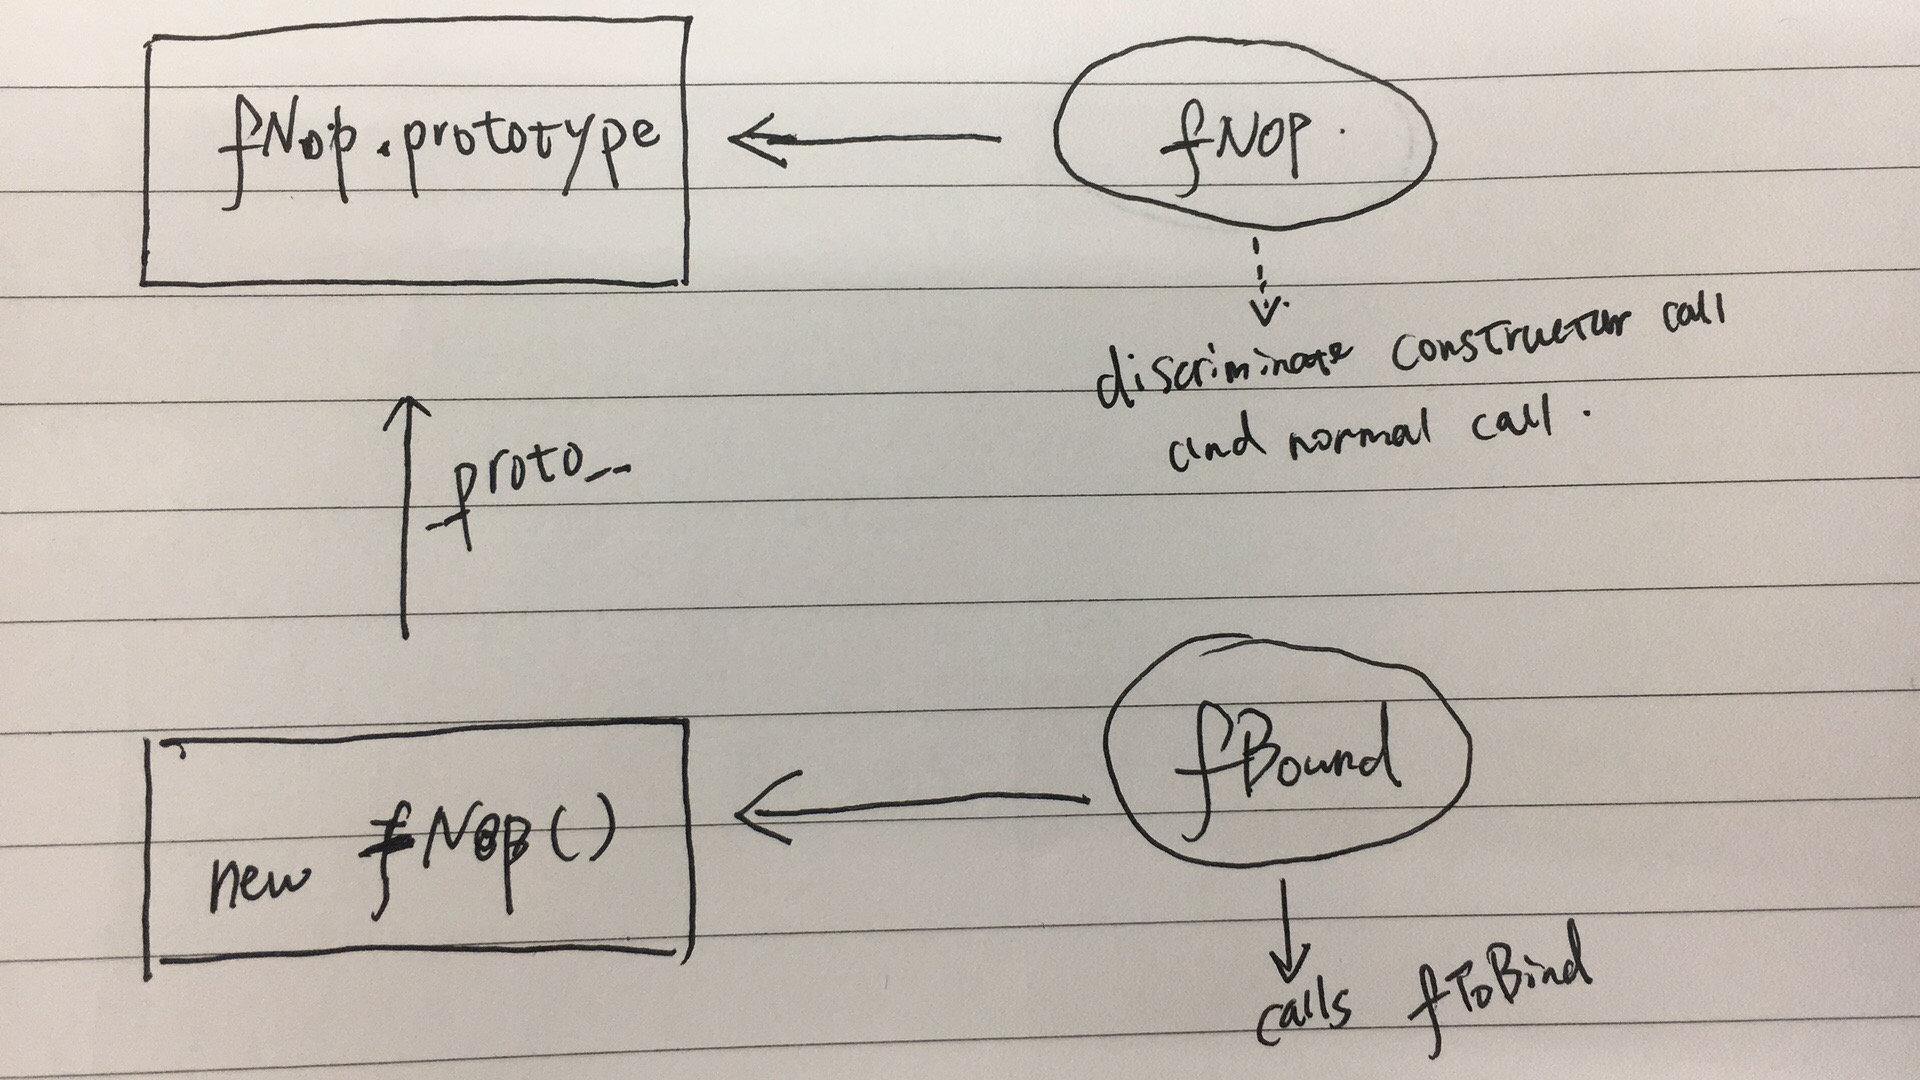 fNop.prototype
fNOP.
discriminate constructor call
and normal call.
_proto__
new fNop()
fBound
calls fToBind